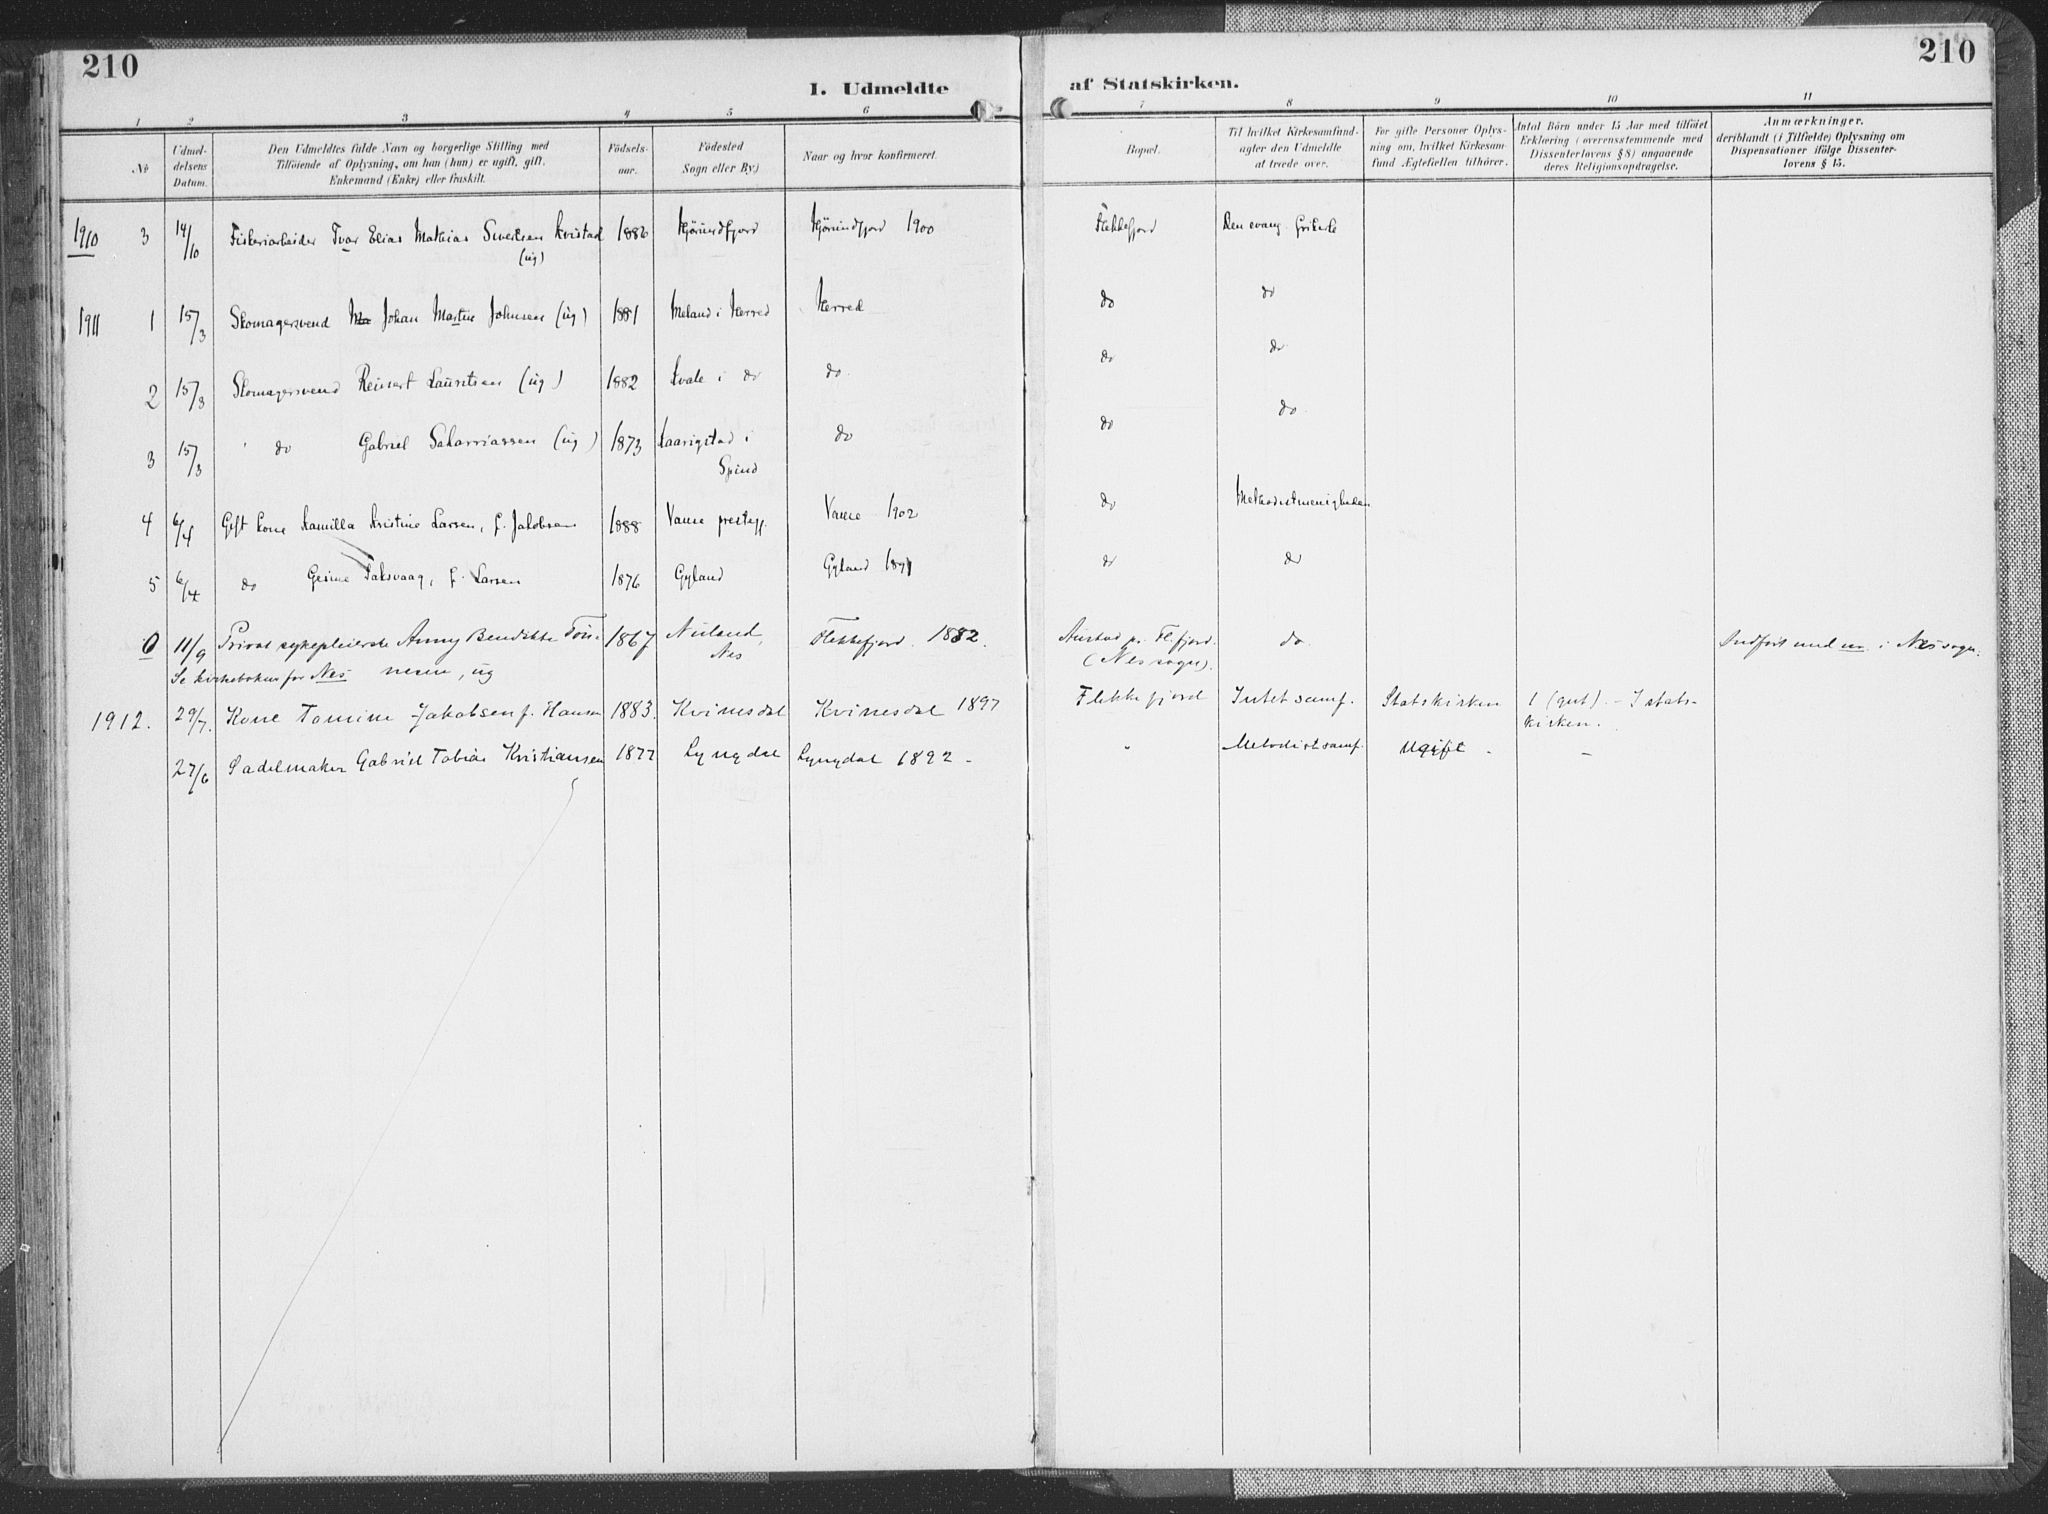 210
210
1. Udmeldte af Statskirken.
1 2 3 4 5 6 7 8 9 10 11
No
Udmel-
delsens
Datum.
Den Udmeldtes fulde Navn og borgerlige Stilling med
Tilföiende af Oplysning, om han (hun) er ugift, gift,
Enkemand (Enke) eller fraskilt.
Födsels-
aar.
Födested
Sogn eller By.)
Naar og hvor konfirmeret.
Bopæl.
Til hvilket Kirkesamfund
agter den Udmeldte
at træde over.
For gifte Personer Oplys-
ning om, hvilket Kirkesam-
fund Ægtefællen tilhörer.
Antal Börn under 15 Aar med tilföiet
Erklæring (overensstemmende med
Dissenterlovens § 8) angaaende
deres Religionsopdragelse.
Anmærkninger.
deriblandt (i Tilfælde) Oplysning om
Dispensationer ifölge Dissenter-
lovens § 15.
1910 3 14/10 Fiskeriarbeider Ivar Elias Mathias Sivertsen Kvistad 1886 Hjörundfjord Hjörundfjord 1900 Flekkefjord Den evang frikirke
(ug)
1911 1 15/3 Skomagersvend Johan Martin Johnsen (ug) 1881 Meland i Herred Herred do do
2 15/3 Skomagersvend Reinert Lauritsen (ug) 1882 Kvale i do do do do
3 15/3 do Gabriel Sakariassen (ug) 1873 Kaarigstad i do do do
Spind
4 6/4 Gift kone Kamilla Kristine Larsen, f. Jakobsen 1888 Vanse prestegj. Vanse 1902 do Methodistmenigheden
5 6/4 do Gesine Taksvaag, f. Larsen 1876 Gyland Gyland 1891 do do
0 11/9 Privat sykepleierske Anny Bendikte Tön- 1867 Nuland, Flekkefjord. 1882. Austad pr. Fl.fjord. do. Indfört med no. i Nes sogn.
Nes (Nes sogn).
Se kirkeboken for Nes nesen, ug
1912. 29/7. Kone Tomine Jakobsen f. Hansen 1883. Kvinesdal Kvinesdal 1897 Flekkefjord Intet samf. Statskirken 1 (gut). - I stats-
kirken.
27/6 Sadelmaker Gabriel Tobias Kristiansen 1877 Lyngdal Lyngdal 1892 - " Metodistsamf. Ugift - -